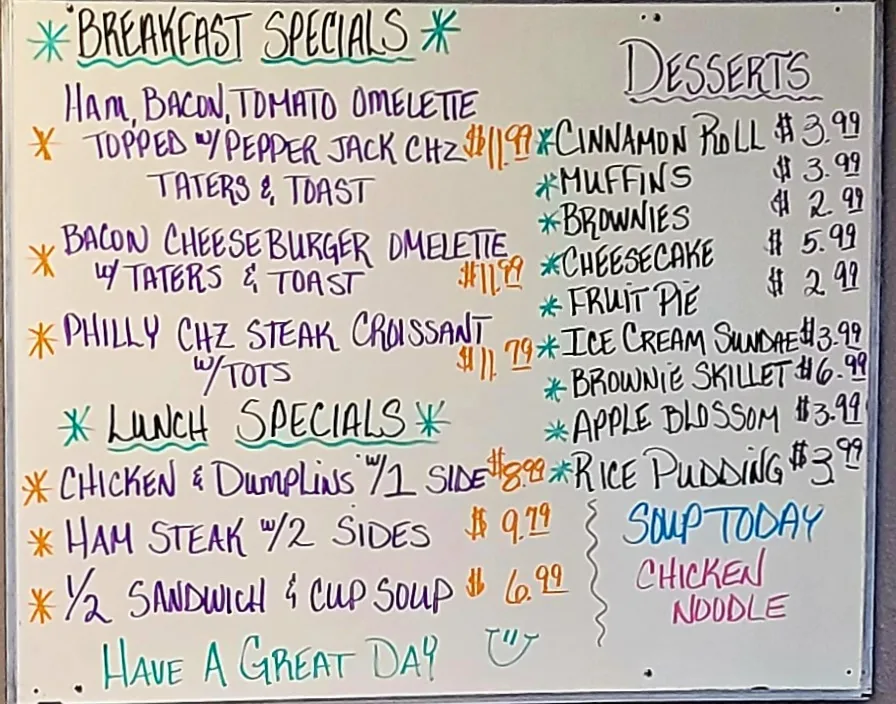 BREAKFAST SPECIALS
HAM, BACON, TOMATO OMELETTE
TOPPED W/ PEPPER JACK CHZ $11.99
TATERS & TOAST
BACON CHEESEBURGER OMELETTE
W/ TATERS & TOAST $11.99
PHILLY CHZ STEAK CROISSANT
W/TOTS $11.79
LUNCH SPECIALS
CHICKEN & DUMPLINS W/1 SIDE $8.99
HAM STEAK W/2 SIDES $9.79
1/2 SANDWICH & CUP SOUP $6.99
HAVE A GREAT DAY
DESSERTS
CINNAMON ROLL $3.99
MUFFINS $3.99
BROWNIES $2.99
CHEESECAKE $5.99
FRUIT PIE $2.99
ICE CREAM SUNDAE $3.99
BROWNIE SKILLET $6.99
APPLE BLOSSOM $3.99
RICE PUDDING $3.99
SOUP TODAY
CHICKEN
NOODLE